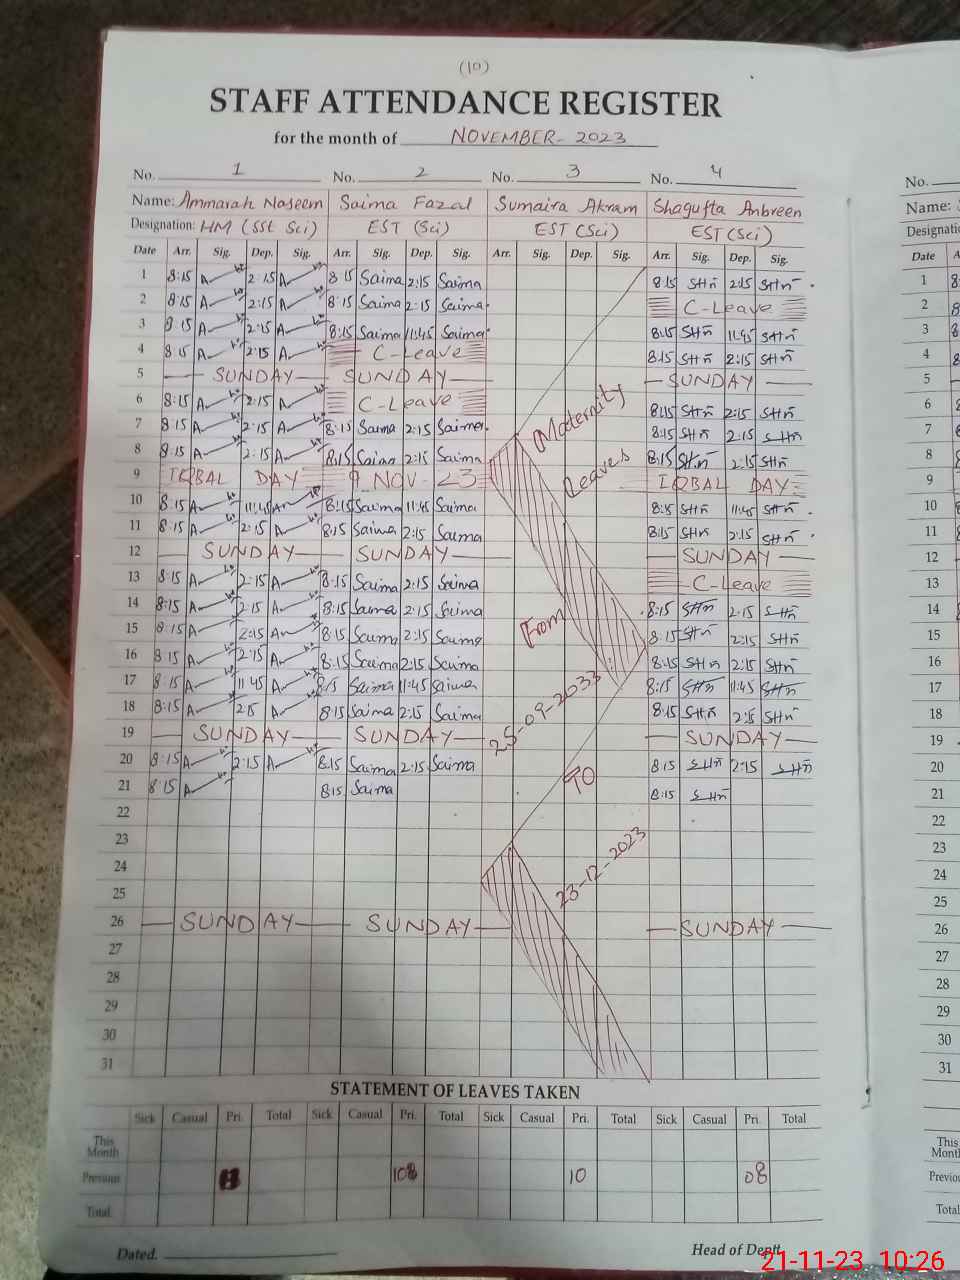 (10)
STAFF ATTENDANCE REGISTER
for the month of NOVEMBER - 2023
No. 1 No. 2 No. 3 No. 4 No.
Name: Ammarah Naseem Saima Fazal Sumaira Akram Shagufta Anbreen Name:
Designation: HM (SSt Sci) EST (Sci) EST (Sci) EST (Sci)
Date Arr. Sig. Dep. Sig. Arr. Sig. Dep. Sig. Arr. Sig. Dep. Sig. Arr. Sig. Dep. Sig. Date
1 8:15 A 2:15 A 8:15 Saima 2:15 Saima 8:15 SHn 2:15 SHn 1
2 8:15 A 2:15 A 8:15 Saima 2:15 Saima C-Leave 2
3 8:15 A 2:15 A 8:15 Saima 11:45 Saima 8:15 SHn 11:45 SHn 3
4 8:15 A 2:15 A C-Leave 8:15 SHn 2:15 SHn 4
5 SUNDAY SUNDAY SUNDAY 5
6 8:15 A 2:15 A C-Leave 8:15 SHn 2:15 SHn 6
7 8:15 A 2:15 A 8:15 Saima 2:15 Saima 8:15 SHn 2:15 SHn 7
8 8:15 A 2:15 A 8:15 Saima 2:15 Saima 8:15 SHn 2:15 SHn 8
9 IQBAL DAY 9 NOV - 23 IQBAL DAY 9
10 8:15 A 11:45 A 8:15 Saima 11:45 Saima 8:15 SHn 11:45 SHn 10
11 8:15 A 2:15 A 8:15 Saima 2:15 Saima 8:15 SHn 2:15 SHn 11
12 SUNDAY SUNDAY SUNDAY 12
13 8:15 A 2:15 A 8:15 Saima 2:15 Saima C-Leave 13
14 8:15 A 2:15 A 8:15 Saima 2:15 Saima 8:15 SHn 2:15 SHn 14
15 8:15 A 2:15 A 8:15 Saima 2:15 Saima 8:15 SHn 2:15 SHn 15
16 8:15 A 2:15 A 8:15 Saima 2:15 Saima 8:15 SHn 2:15 SHn 16
17 8:15 A 11:45 A 8:15 Saima 11:45 Saima 8:15 SHn 11:45 SHn 17
18 8:15 A 2:15 A 8:15 Saima 2:15 Saima 8:15 SHn 2:15 SHn 18
19 SUNDAY SUNDAY SUNDAY 19
20 8:15 A 2:15 A 8:15 Saima 2:15 Saima 8:15 SHn 2:15 SHn 20
21 8:15 A 8:15 Saima 8:15 SHn 21
22 22
23 23
24 24
25 25
26 SUNDAY SUNDAY SUNDAY 26
27 27
28 28
29 29
30 30
31 31
Maternity
Leaves
From
25-09-2033
TO
23-12-2023
STATEMENT OF LEAVES TAKEN
Sick Casual Pri. Total Sick Casual Pri. Total Sick Casual Pri. Total Sick Casual Pri. Total
This Month This Month
Previous 108 10 08
Total Total
Dated. Head of Deptt.
21-11-23 10:26